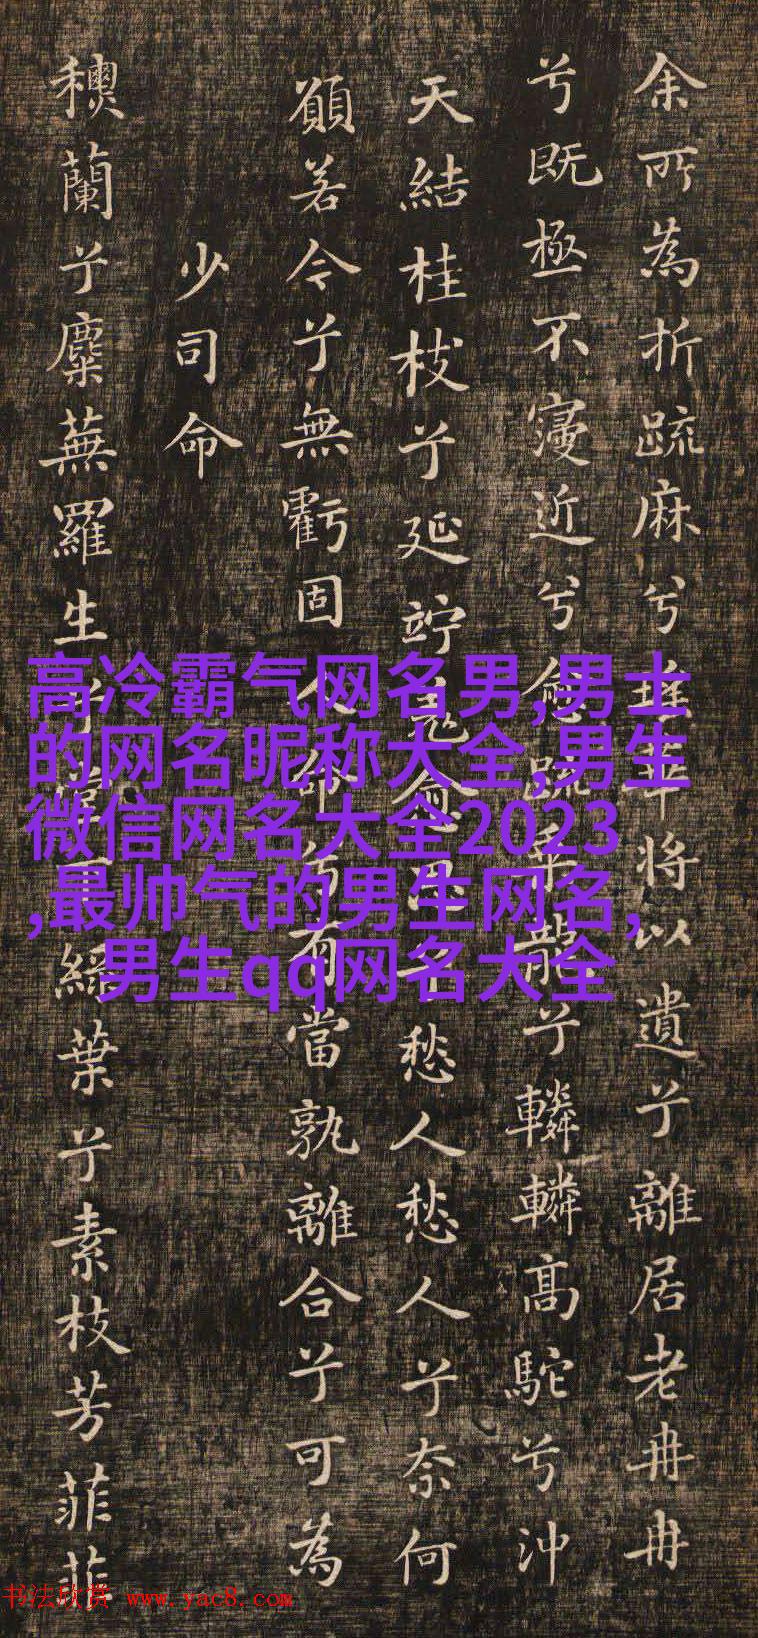 余所為折疏麻兮瑤華將以遺兮離居老冉冉
兮既極不寖近兮愈疏乘龍兮轔轔高駝兮沖
天結桂枝兮延竚羌愈思兮愁人愁人兮奈何
願若今兮無虧固人命兮有當孰離合兮可為
少司命
蘭兮麋蕪羅生兮堂下綠葉兮素枝芳菲菲
高冷霸气网名男,男士
的网名昵称大全,男生
微信网名大全2023
,最帅气的男生网名,
男生qq网名大全
书法欣赏 www.yac8.com